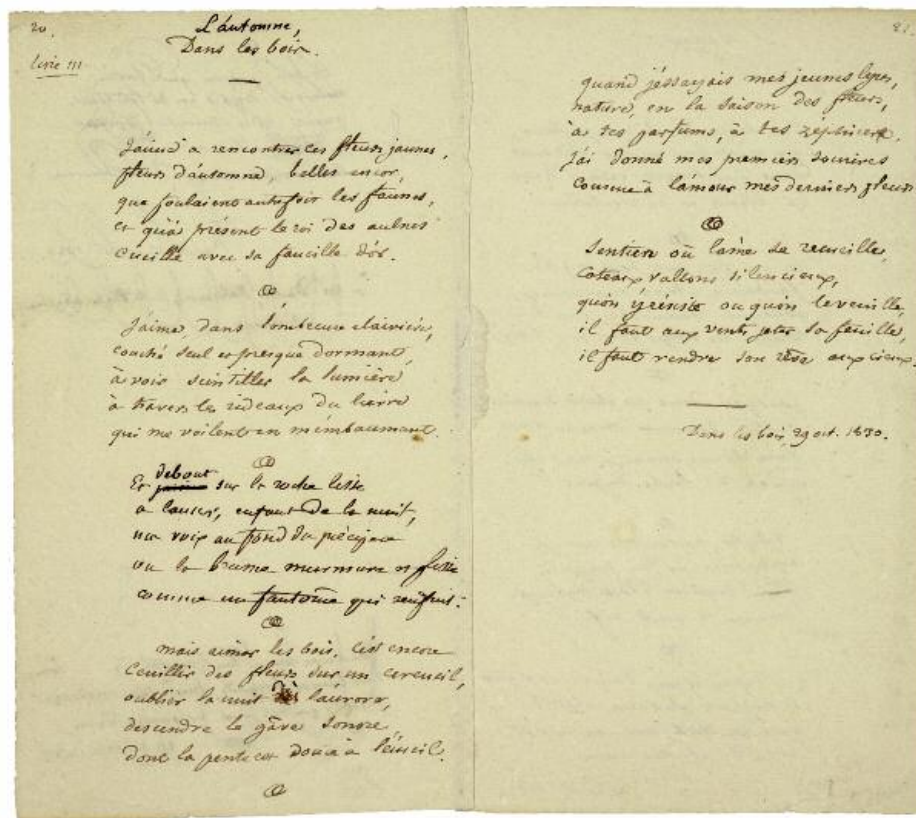 20.
L'automne,
Dans les bois.
livre III
J'aime à rencontrer ces fleurs jaunes,
fleurs d'automne, belles encor,
que foulaient autrefois les faunes,
et qu'à présent le roi des aulnes
cueille avec sa faucille d'or.
J'aime, dans l'ombreuse clairière,
couché seul et presque dormant,
à voir scintiller la lumière
à travers les rideaux du lierre
qui me voilent en m'embaumant.
debout
Et sur la roche lisse
à lancer, enfant de la nuit,
ma voix au fond du précipice
où la brume murmure et glisse
comme un fantôme qui s'enfuit.
mais aimer les bois, c'est encore
Ceuillir des fleurs sur un cerceuil,
oublier la nuit l'aurore,
descendre le gâve sonore
dont la pente est douce à l'écueil.
21.
quand j'éssayais mes jeunes lyres,
nature, en la saison des fleurs,
à tes parfums, à tes zéphires,
J'ai donné mes premiers sourires
comme à l'amour mes derniers pleurs
Sentiers où l'âme se recueille,
coteaux, vallons silencieux,
qu'on y résiste ou qu'on le veuille,
il faut aux vents jeter sa feuille,
il faut rendre son rêve aux cieux.
Dans les bois, 29 oct. 1830.